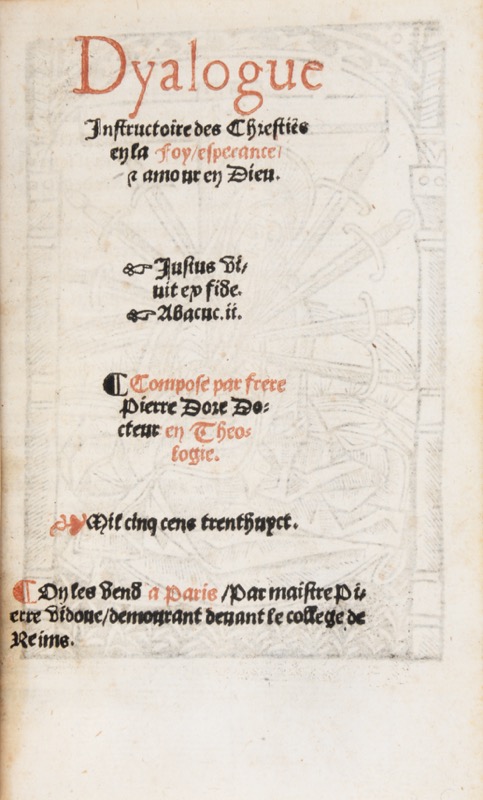 Dyalogue
Instructoire des Chrestiẽs
en la Foy/esperance/
⁊ amour en Dieu.
☞ Justus vi/
uit ex fide.
☞ Abacuc.ii.
¶ Compose par frere
Pierre Dore Do-
cteur en Theo-
logie.
❧ Mil cinq cens trenthuyct.
¶ On les vend a Paris /Par maistre Pi-
erre vidoue/demourant devant le college de
Reims.